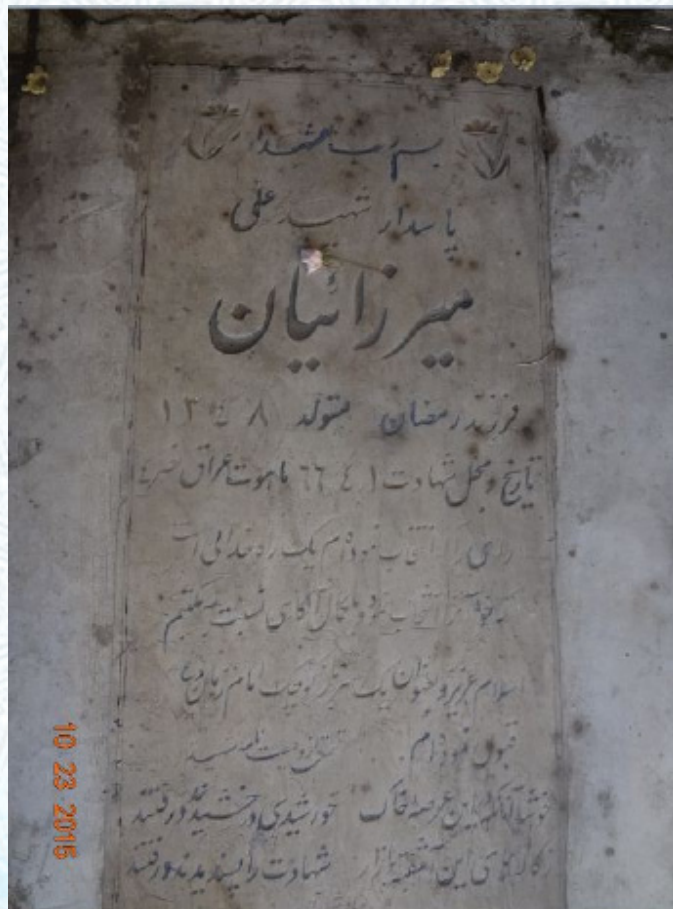 بسم رب الشهدا
پاسدار شهید علی
میرزائیان
فرزند رمضان متولد ۱۳۴۸
تاریخ و محل شهادت ۶۶٫۴٫۱ ماهوت عراق نصر ۴
راهی را انتخاب نموده‌ام یک راه خدائی است
که خود آنرا انتخاب و با کمال آگاهی نسبت به مکتبم
اسلام عزیز و بعنوان یک سرباز کوچک امام زمان (عج)
قبول نموده‌ام. متن از وصیت نامه شهید
خوشا آنانکه در این عرصه خاک خورشیدی درخشیدند و رفتند
ز کالاهای این آشفته بازار شهادت را پسندیدند و رفتند
10 23 2015